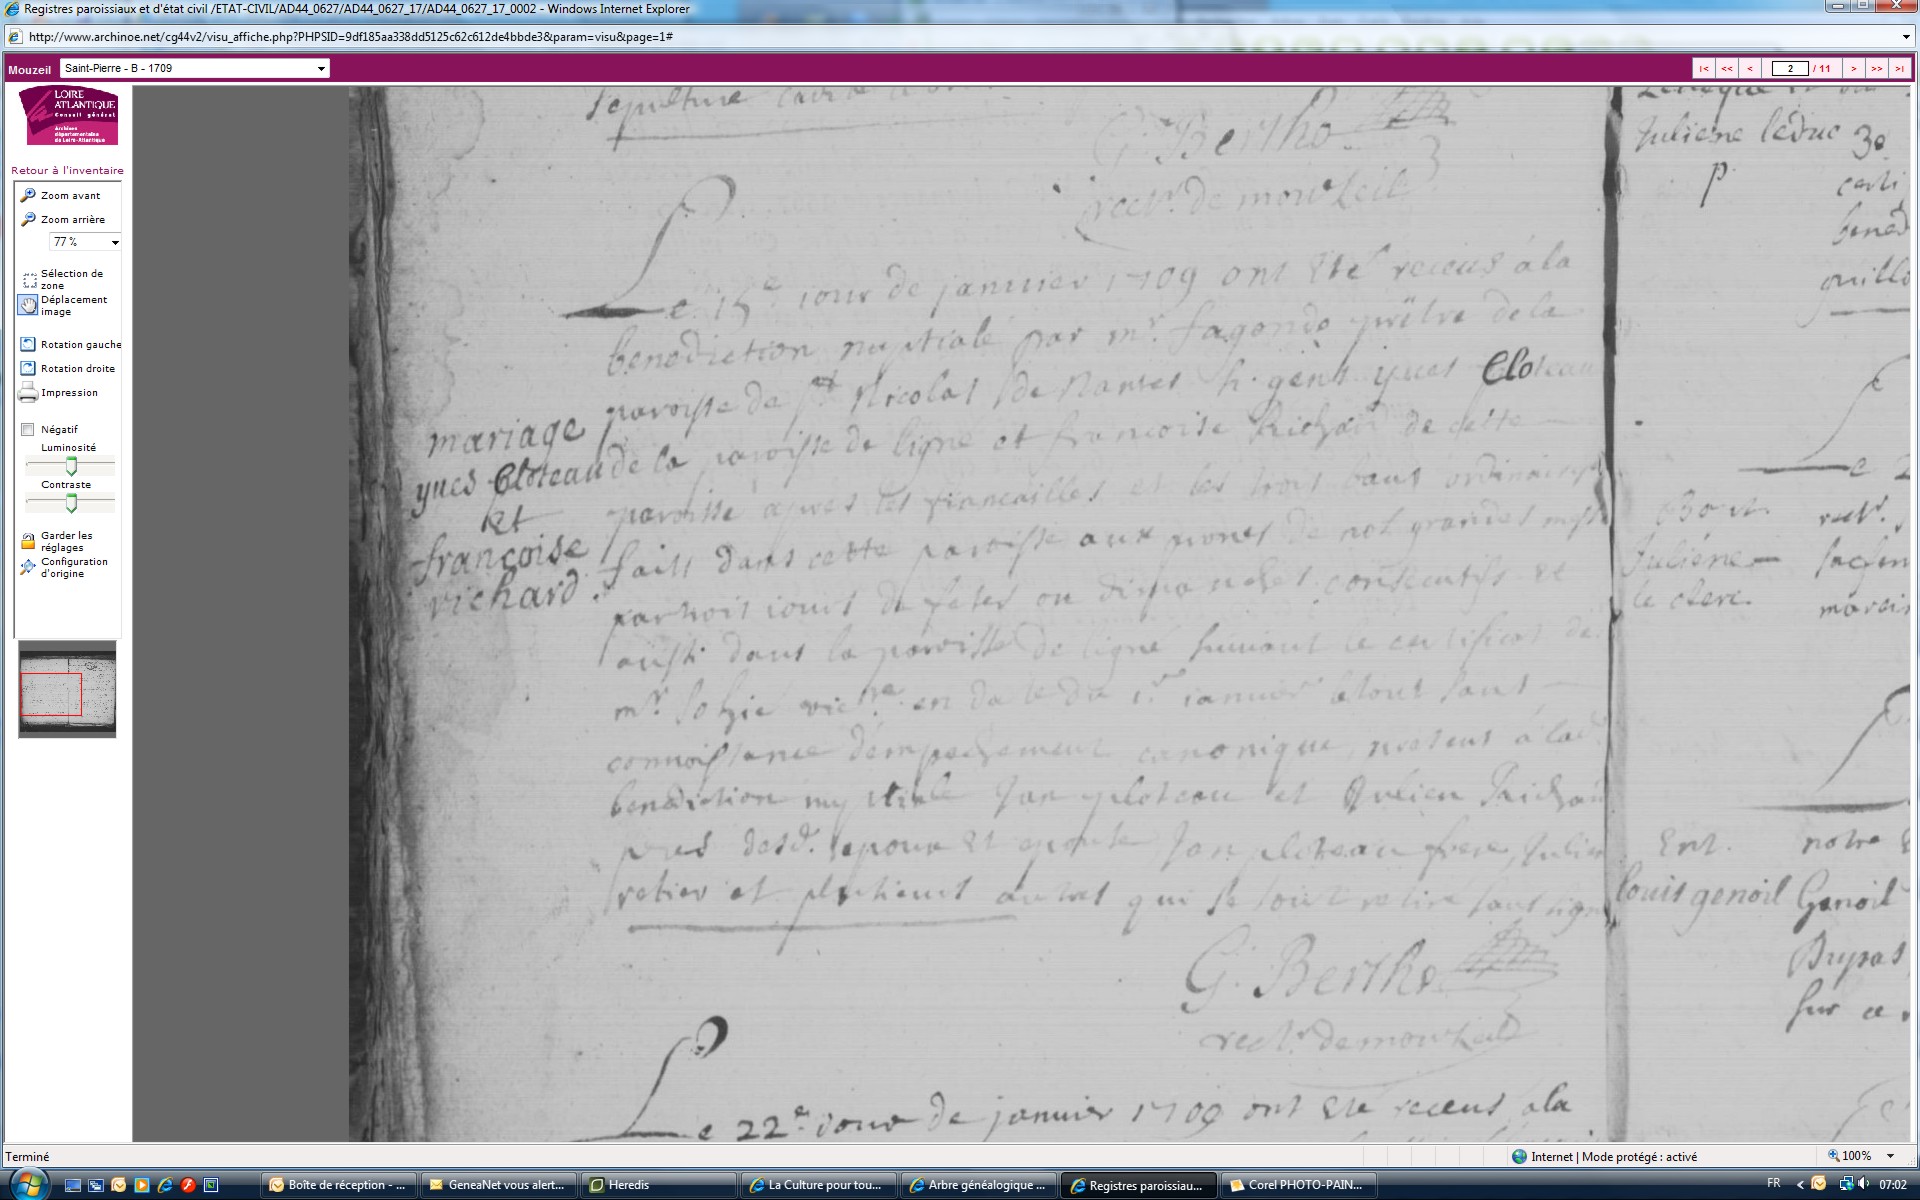 Registres paroissiaux et d'état civil /ETAT-CIVIL/AD44_0627/AD44_0627_17/AD44_0627_17_0002 - Windows Internet Explorer
http://www.archinoe.net/cg44v2/visu_affiche.php?PHPSID=9df185aa338dd5125c62c612de4bbde3&param=visu&page=1#
Mouzeil Saint-Pierre - B - 1709
|< << < 2 / 11 > >> >|
LOIRE
ATLANTIQUE
Conseil général
Archives
départementales
de Loire-Atlantique
Retour à l'inventaire
Zoom avant
Zoom arrière
77 %
Sélection de
zone
Déplacement
image
Rotation gauche
Rotation droite
Impression
Négatif
Luminosité
Contraste
Garder les
réglages
Configuration
d'origine
sepulture
G. Bertho
rect.r de mouzeil
Le 15e iour de januier 1709 ont Esté receus à la
benediction nuptiale par mr. fagondé prêtre de la
paroisse de st Nicolas de Nantes h. gens yues Cloteau
de la paroisse de ligné et francoise Richard de cette
paroisse apres les fiancailles et les trois bans ordinaires
faits dans cette paroisse aux prones de nos grandes messes
par trois iours de festes ou dimanches consecutifs Et
aussi dans la paroisse de ligné suiuant le certificat de
mr. en date du januier le tout sans
connoissance d'empechement canonique, presens à lad.
benediction nuptiale Jan ploteau et Julien Richard
peres desd. epoux Et epouse Jan ploteau frere, Julien
retier et plusieurs autres qui se sont retiré sans signer
mariage
yues Cloteau
Et
francoise
richard.
G. Bertho
rect.r de mouzeil
Le 22e iour de januier 1709 ont Esté receus a la
Juliene leduc 30
p.
certi
bened
guillo
Juliéne
le clerc.
Ent. notre
louis genoil Genoil
Dupas
sur ce
Terminé
Internet | Mode protégé : activé
100%
Boîte de réception - ...
GeneaNet vous alert...
Heredis
La Culture pour tou...
Arbre généalogique ...
Registres paroissiau...
Corel PHOTO-PAIN...
FR
07:02